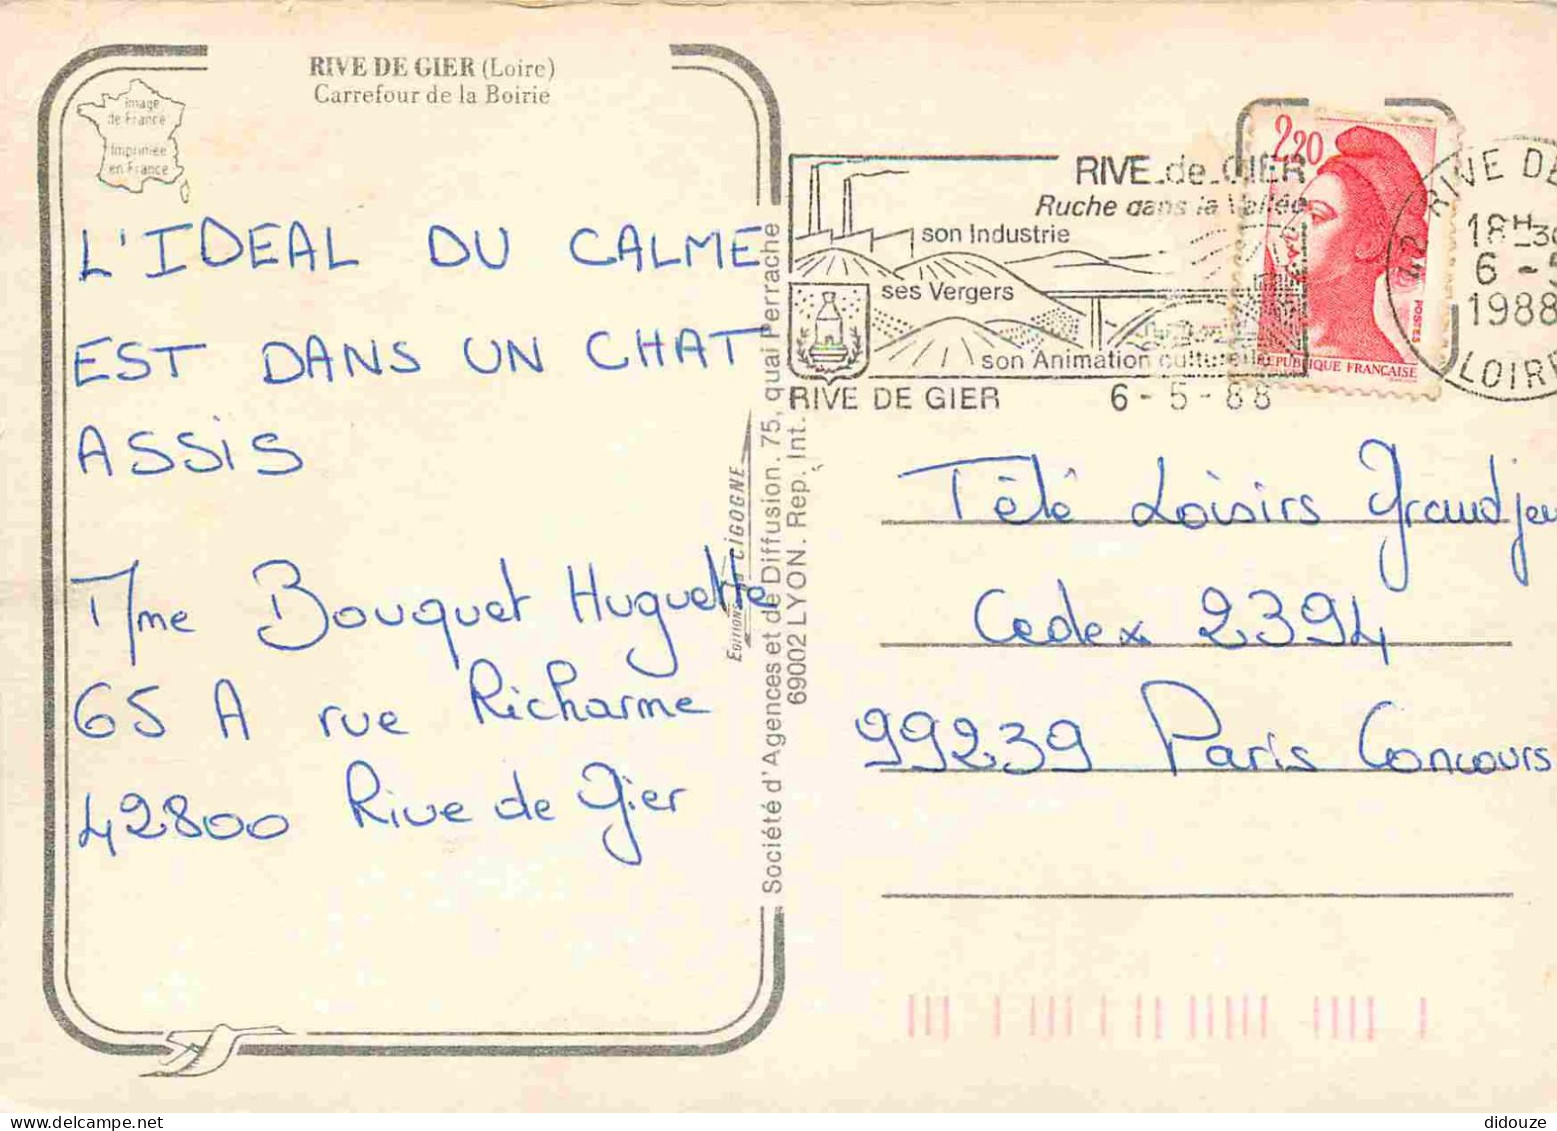 RIVE DE GIER (Loire)
Carrefour de la Boirie
Image
de France
Imprimée
en France
L'IDEAL DU CALME
EST DANS UN CHAT
ASSIS
Mme Bouquet Huguette
65 A rue Richarme
42800 Rive de Gier
EDITIONS CIGOGNE
Société d'Agences et de Diffusion. 75, quai Perrache
69002 LYON. Rep. Int.
RIVE de GIER
Ruche dans la Vallée
son Industrie
ses Vergers
son Animation culturelle
RIVE DE GIER 6-5-88
2,20
POSTES
REPUBLIQUE FRANÇAISE
42 RIVE DE
18H
6-5
1988
LOIRE
Télé Loisirs Grandjeu
Cedex 2394
99239 Paris Concours
didouze